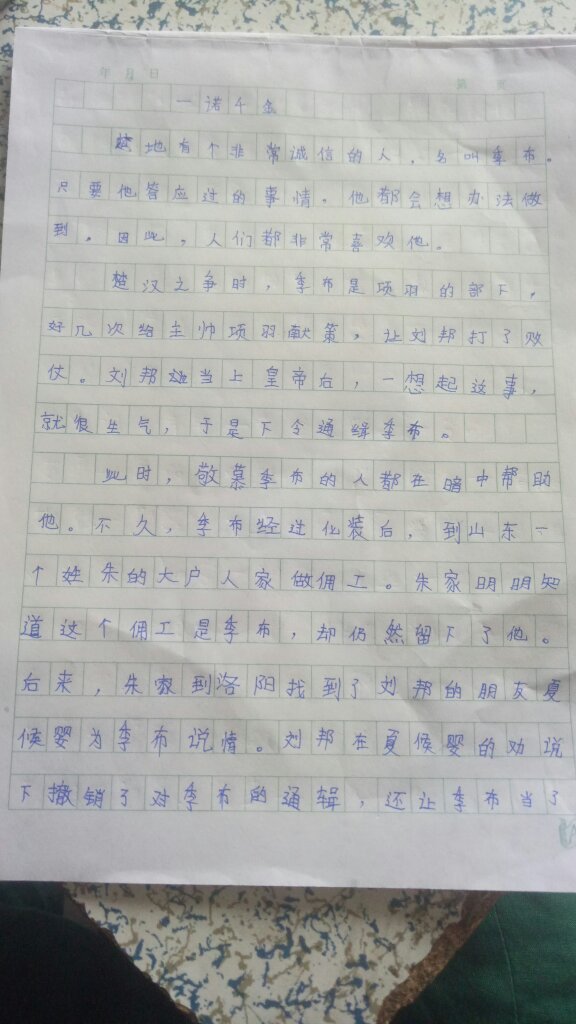 年 月 日 第 页
一诺千金
楚地有个非常诚信的人，名叫季布。
只要他答应过的事情，他都会想办法做
到。因此，人们都非常喜欢他。
楚汉之争时，季布是项羽的部下，
好几次给主帅项羽献策，让刘邦打了败
仗。刘邦当上皇帝后，一想起这事，
就很生气，于是下令通缉季布。
此时，敬慕季布的人都在暗中帮助
他。不久，季布经过化装后，到山东一
个姓朱的大户人家做佣工。朱家明明知
道这个佣工是季布，却仍然留下了他。
后来，朱家到洛阳找到了刘邦的朋友夏
候婴为季布说情。刘邦在夏候婴的劝说
下撤销了对季布的通辑，还让季布当了